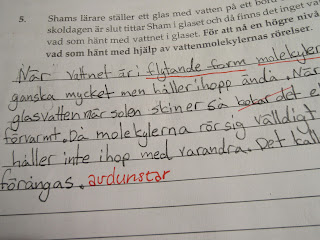 5. Shams lärare ställer ett glas med vatten på ett bord
skoldagen är slut tittar Sham i glaset och då finns det inget va
vad som hänt med vattnet i glaset. För att nå en högre nivå
vad som hänt med hjälp av vattenmolekylernas rörelser.
När vattnet är i flytande form molekyler
ganska mycket men håller ihopp ändå. När
glasvatten när solen skiner så bokar det
förvarmt. Då molekylerna rör sig välldigt
håller inte ihop med varandra. Det kall
förångas. avdunstar